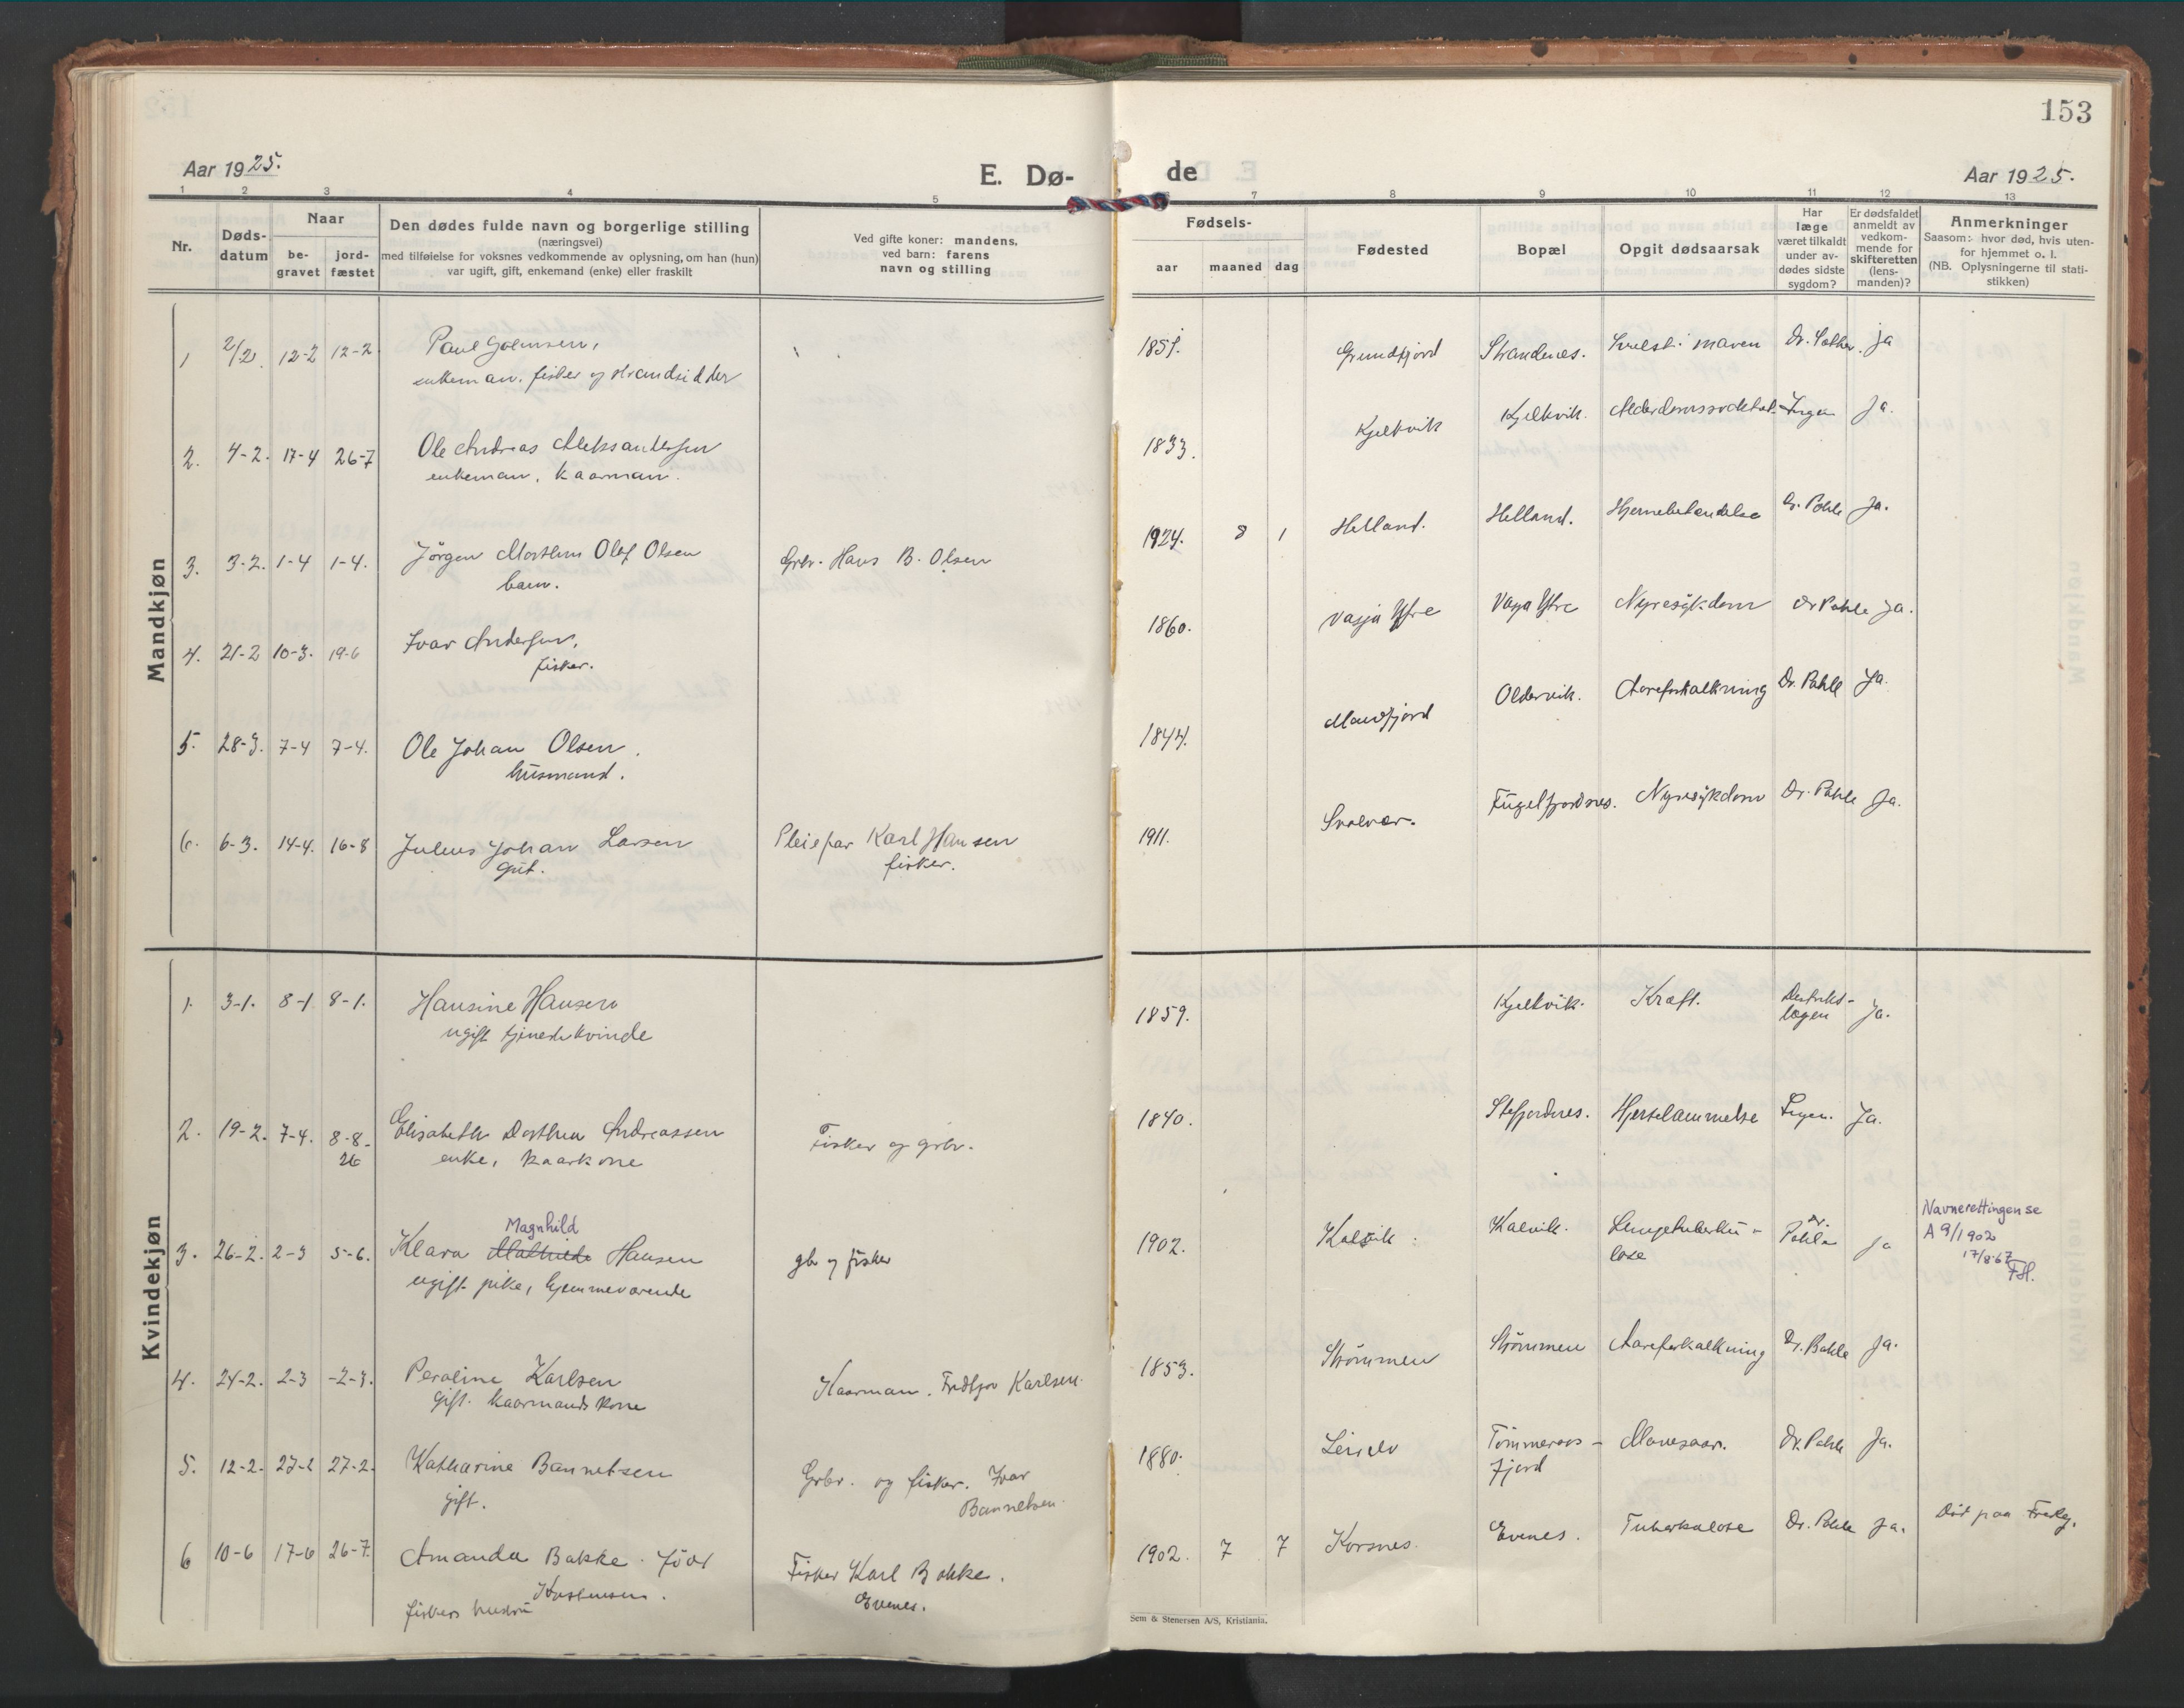 153
Aar 1925.
E. Dø-
de
Aar 1925.
1 2 3 4 5 7 8 9 10 11 12 13
Nr.
Døds-
datum
Naar
be-
gravet
jord-
fæstet
Den dødes fulde navn og borgerlige stilling
(næringsvei)
med tilføielse for voksnes vedkommende av oplysning, om han (hun)
var ugift, gift, enkemand (enke) eller fraskilt
Ved gifte koner: mandens,
ved barn: farens
navn og stilling
Fødsels-
aar maaned dag
Fødested
Bopæl
Opgit dødsaarsak
Har
læge
været tilkaldt
under av-
dødes sidste
sygdom?
Er dødsfaldet
anmeldt av
vedkom-
mende for
skifteretten
(lens-
manden)?
Anmerkninger
Saasom: hvor død, hvis uten-
for hjemmet o. l.
(NB. Oplysningerne til stati-
stikken)
Mandkjøn
1 2/2. 12-2 12-2 Paul 1857. Grundfjord Strandenes. maven Dr. ja
enkeman. fisker og strandsidder
2. 4-2. 17-4 26-7 Ole Andreas Aleksandersen 1833. Kjelkvik Kjelkvik. Ingen Ja.
enkeman, kaarman.
3. 3-2. 1-4 1-4. Jörgen Morthen Olaf Olsen Grbr. Hans B. Olsen 1924. 8 1 Helland. Helland. Hjernebetændelse Dr. Pahle Ja.
barn.
4. 21-2 10-3. 19-6 Ivar Andersen, 1860. Vasja Yfre Vasja Yfre Nyresykdom Dr Pahle Ja.
fisker.
5. 28-3. 7-4 7-4. Ole Johan Olsen. 1844. Mandfjord Oldervik. Aareforkalkning Dr. Pahle Ja.
husmand.
6. 6-3. 14-4. 16-8 Julius Johan Larsen Pleiefar Karl Hansen 1911. Svolvær. Fuglfjordnes. Nyresykdom Dr. Pahle Ja.
gut. fisker.
Kvindekjøn
1. 3-1. 8-1 8-1. Hansine Hansen 1859. Kjelkvik. Kræft. Distrikts-
lægen Ja.
ugift tjenestekvinde
2. 19-2. 7-4. 8-8-
26 Elisabeth Dorthea Andreassen Fisker og grbr. 1840. Stefjordnes. Hjertelammelse Ingen. Ja.
enke, kaarkone
Magnhild
3. 26-2. 2-3 5-6. Klara Mathilde Hansen gbr og fisker 1902. Kalvik. Kalvik. Lungetuberku-
lose Dr.
Pahle ja
ugift pike, hjemmeværende
Navnerettingen se
A 9/1902
17/8-67
FH.
4. 24-2. 2-3 -2-3. Peroline Karlsen Kaarman. Fridtjov Karlsen. 1853. Strömmen Strömmen Aareforkalkning Dr. Pahle Ja.
gift. kaarmands kone
5. 12-2. 27-2 27-2. Katharine Bannetsen Grbr. og fisker. Ivar
Bannetsen. 1880. Leirelv Tömmeraas-
fjord Mavesaar. Dr. Pahle Ja.
gift.
6 10-6 17-6 26-7. Amanda Bakke. född Fisker Karl Bakke.
Evenes. 1902. 7 7 Korsnes. Evenes. Tuberkulose Dr. Pahle Ja. Död paa
fiskers hustru
Sem & Stenersen A/S, Kristiania.